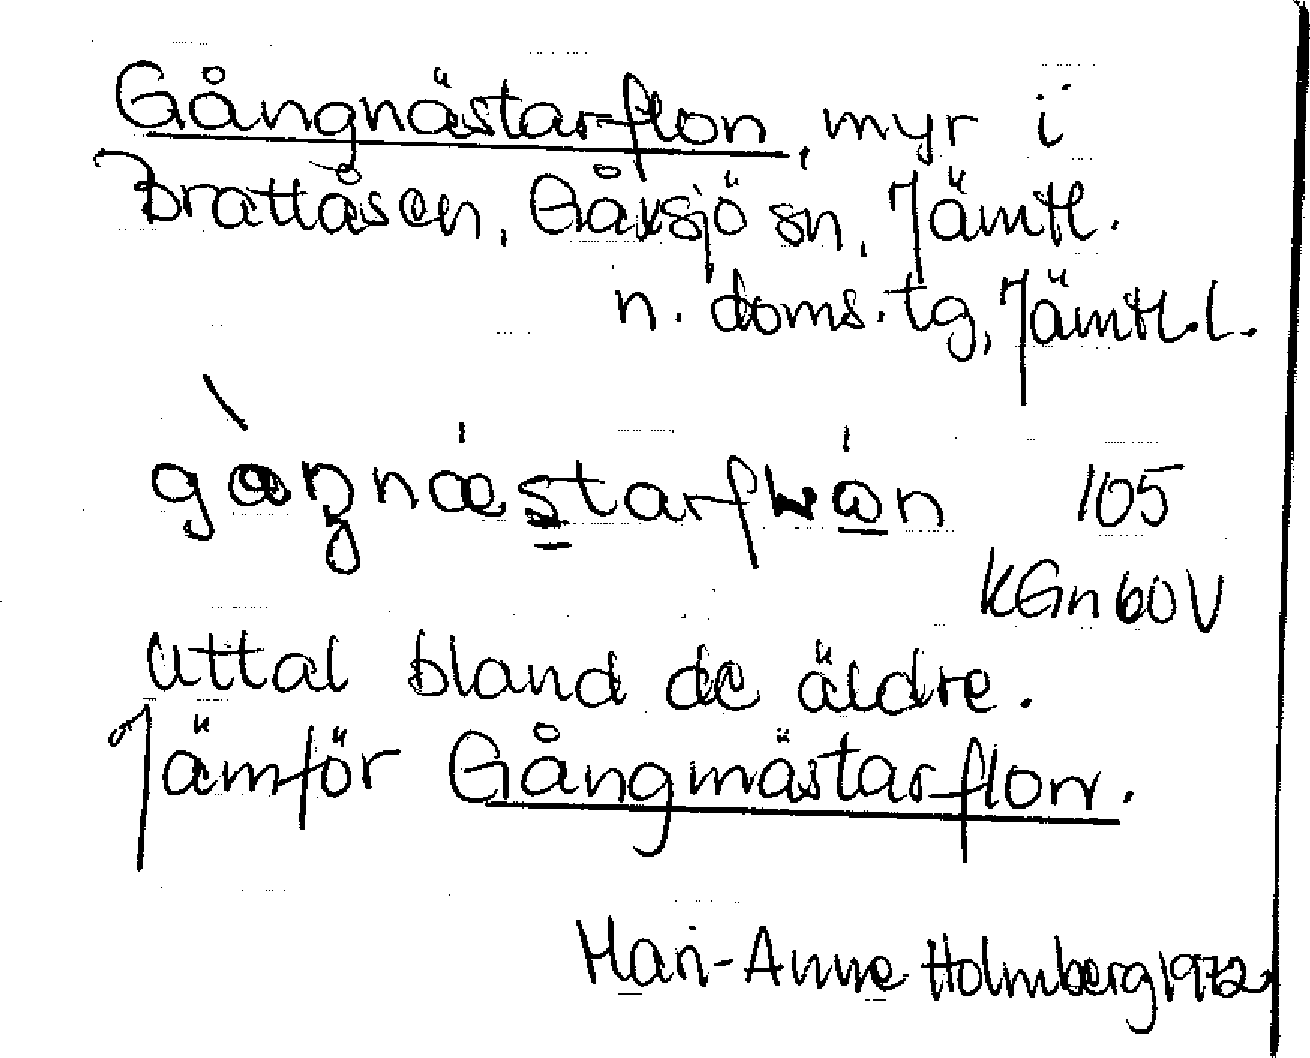 Gångnästarflon, myr i
Brattåsen, Gåxsjö sn, Jämtl.
n. doms. tg, Jämtl. l.
105
KGn 60 V
Uttal bland de äldre.
Jämför Gångmästarflon.
Mari-Anne Holmberg 1972